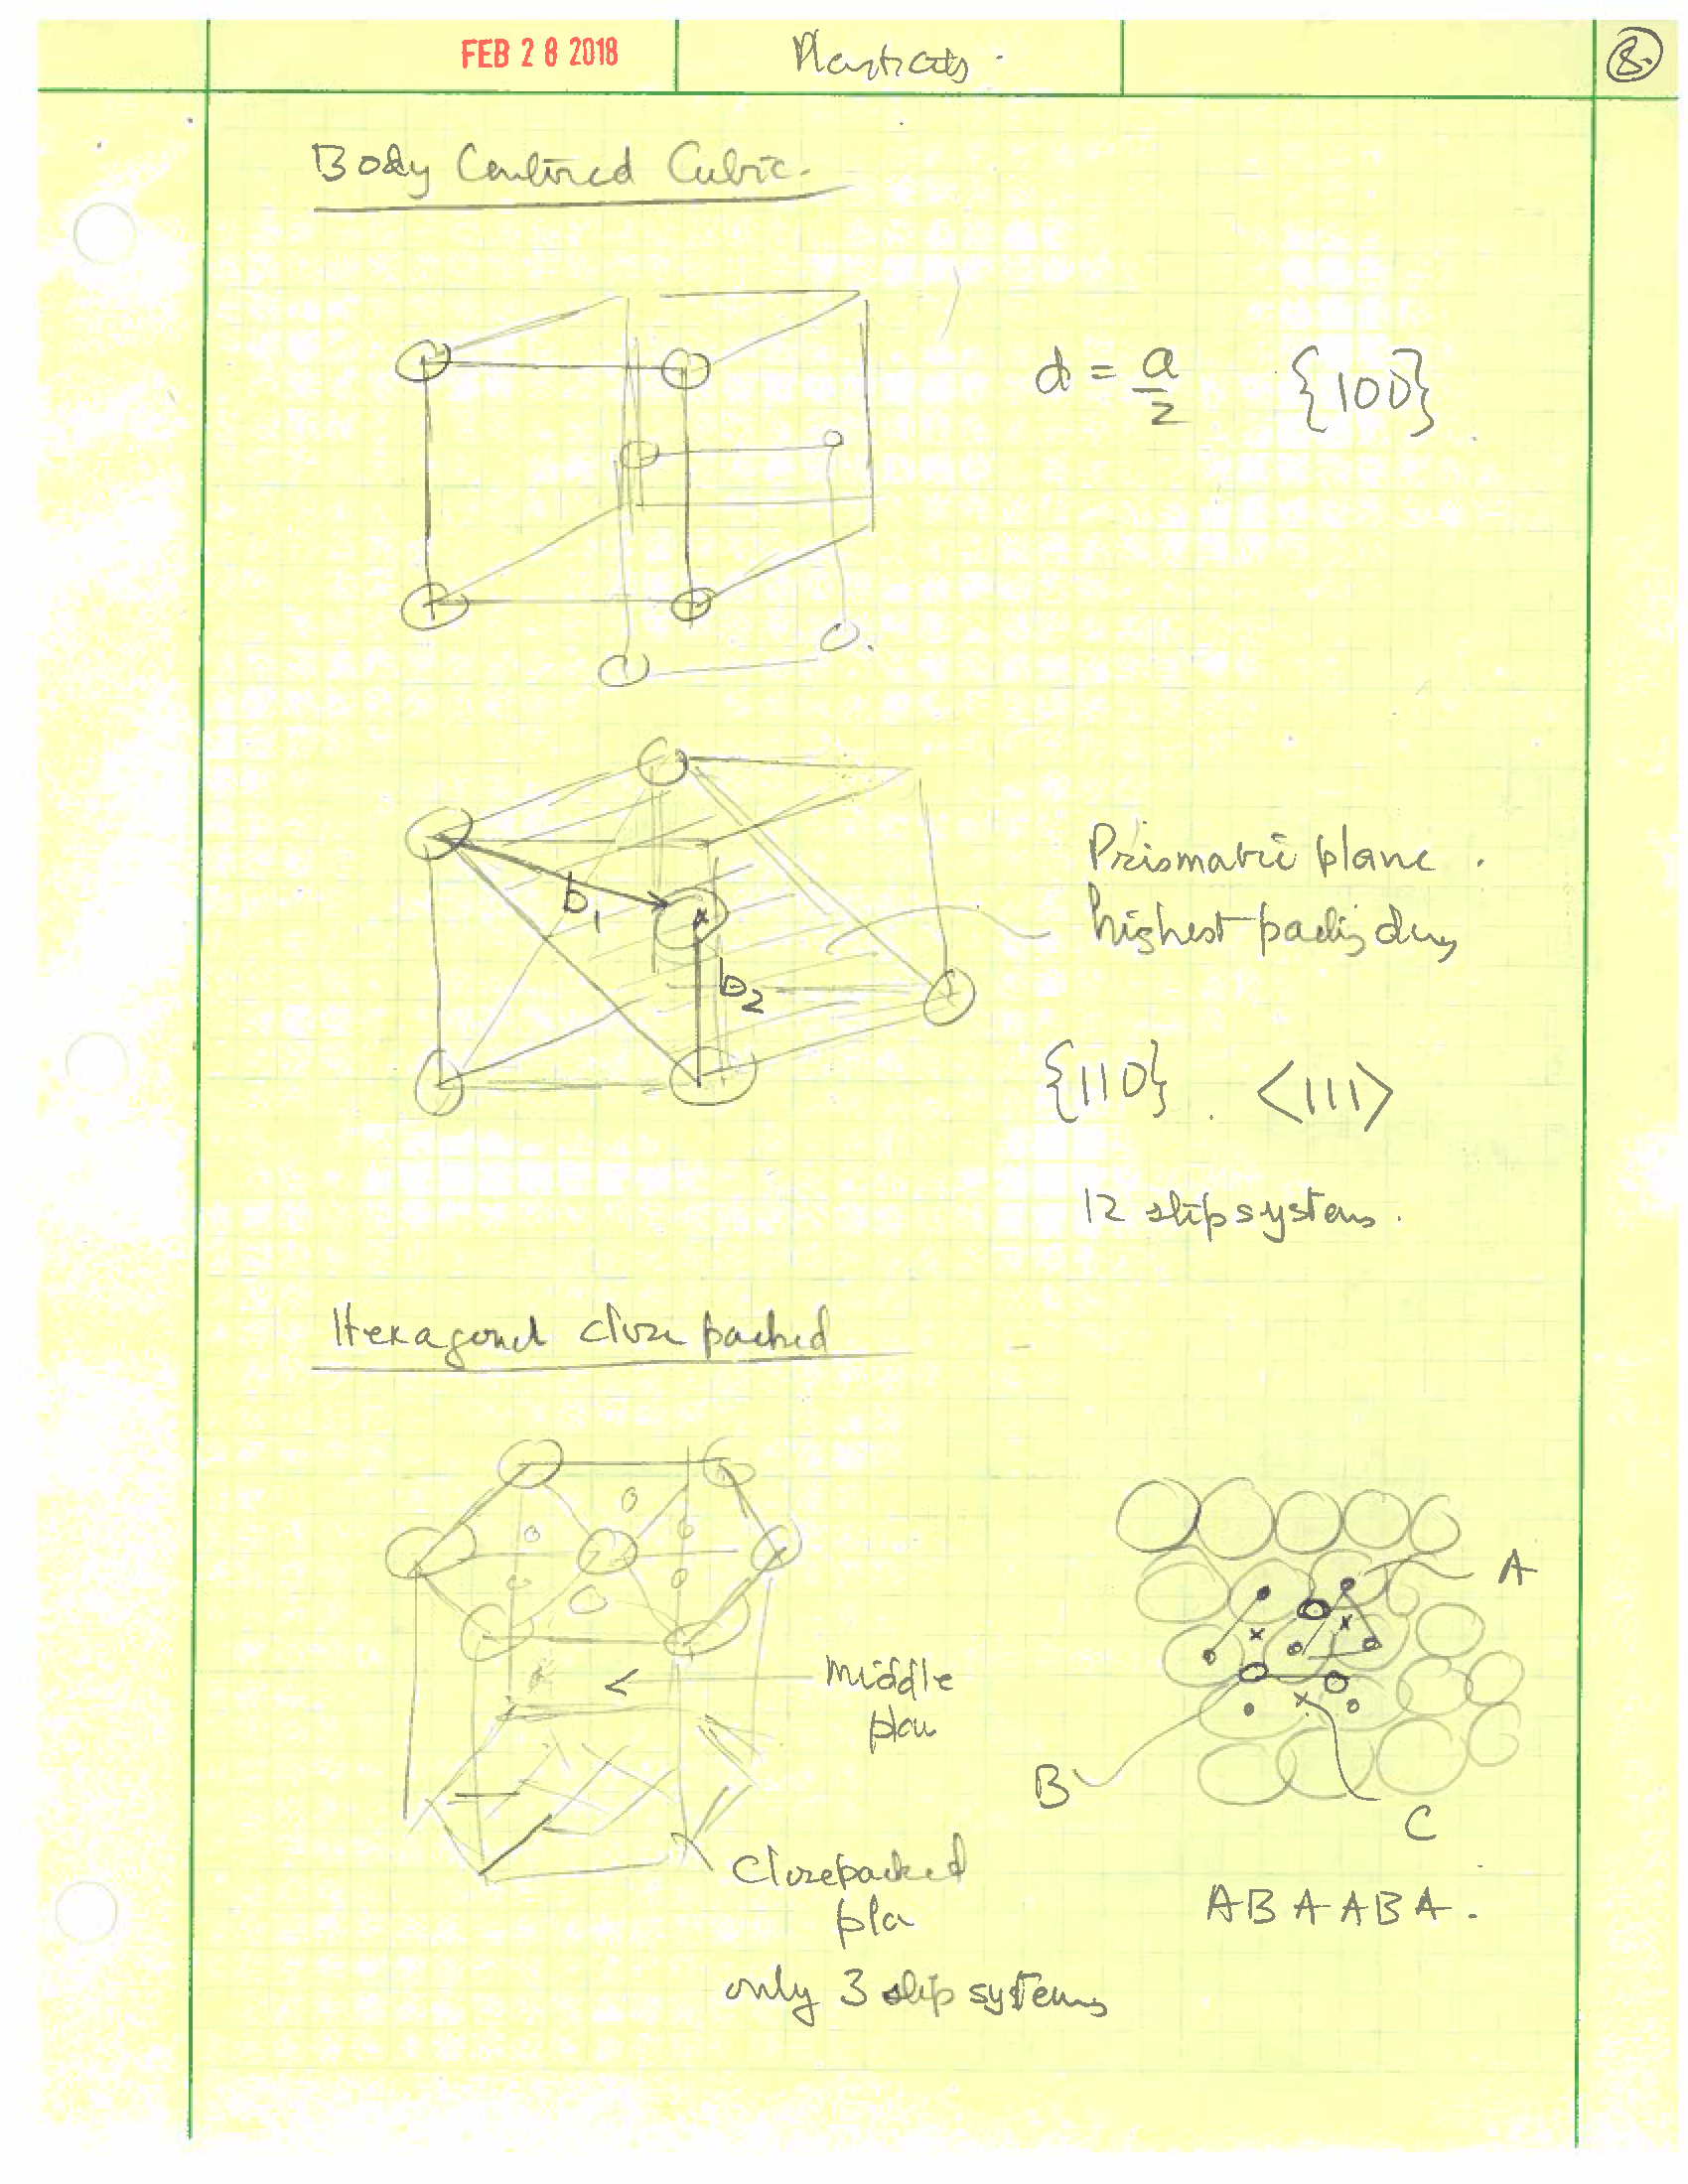 FEB 28 2018
8.
Body Centered Cubic.
d = a/2 {100}
b1
b2
Prismatic plane.
highest packing
{110}. <111>
12 slip systems.
Hexagonal close packed
A
Middle
plan
B
C
Closepacked
pla
ABAABA.
only 3 slip systems